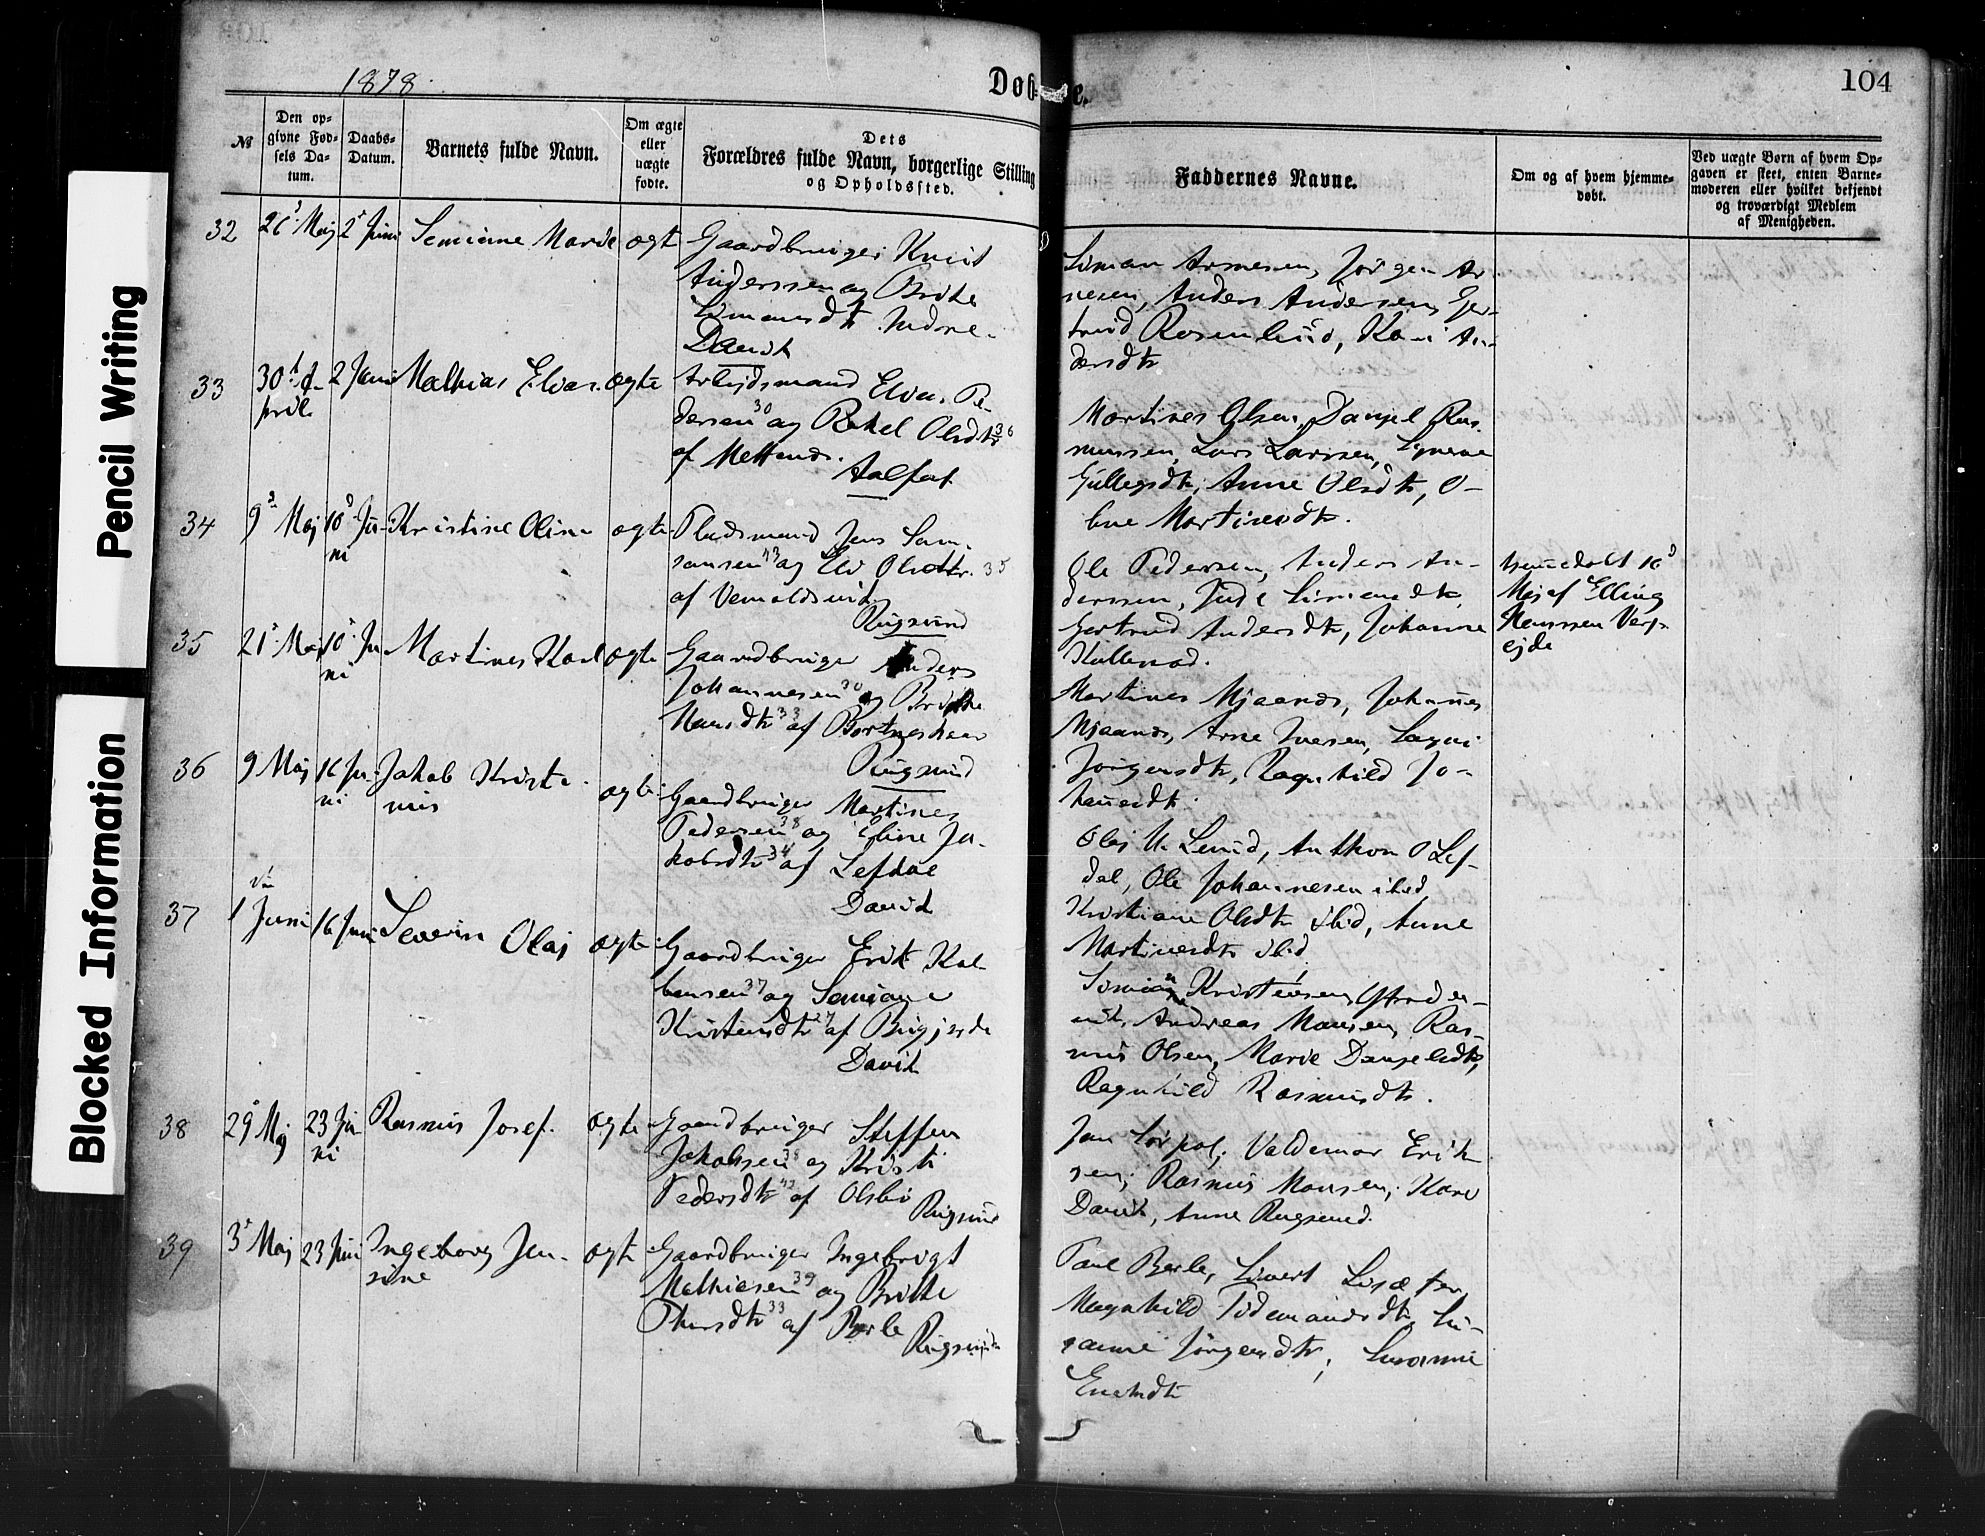 1878.
Døb
e.
104
№
Den op-
givne Fød-
sels Da-
tum.
Daabs-
Datum.
Barnets fulde Navn.
Om ægte
eller
uægte
fødte.
Dets
Forældres fulde Navn, borgerlige Stilling
og Opholdssted.
Faddernes Navne.
Om og af hvem hjemme-
døbt.
Ved uægte Børn af hvem Op-
gaven er skeet, enten Barne-
moderen eller hvilket bekjendt
og troværdigt Medlem
af Menigheden.
Pencil Writing
Blocked Information
32
Maj
2 Juni
ogt
Gaardbruger Knud
Anderssen og Brithe
Simonsdtr Indre-
Davik
Simon Arnesen, Jørgen Ar
nesen, Anders Andersen, Ger-
trud Rosenlund, Kari An-
dersdtr
33
30 A-
pril
2 Juni
Mathias Elias
ogte
Arbejdsmand Elias Pe-
dersen 30 og Rakel Olsdtr 36
af
Aalfot
Martines Olsen, Daniel Ras
mussen, Lars Larssen,
Anne Olsdtr, O-
line Martinusdtr.
34
9 Maj
10 Ju-
ni
Kristine Oline
ogte
Pladsmand Jens Sam-
sonsen 43 og Eli Olsdtr. 35
af
Rugsund
Ole Pedersen, Anders An-
derssen,
Gertrud Andersdtr, Johanne
hjemmedøbt 10
Maj af Elling
Hanssen Verp-
ejde
35
21 Maj
10 Ju
ni
Martines Karl
ogte
Gaardbruger Anders
Johannesen 30 og Brithe
Hansdtr 33 af
Rugsund
Martines Mjaanes, Johannes
Mjaanes, Arne Ivesen,
Jørgensdtr, Ragnhild Jo-
hannesdtr.
36
9 Maj
16 Ju-
ni
Jakob Kristi-
nus
ogte
Gaardbruger Martines
Pedersen 38 og Eline Ja-
kobsdtr 34 af Lefdal
Davik
Olaj Lund, Anthon O Lef-
dal, Ole Johannesen ibid,
Kristiane Olsdtr ibid, Anne
Martinusdtr ibid
37
1 Juni
16 Juni
Severin Olaj
ogte
Gaardbruger Erik Kol-
bensen 37 og
Kristensdtr 27 af
Davik
Simon Kristensen
Andreas Monsen, Ras-
mus Olsen, Marie Danjelsdtr,
Ragnhild Rasmusdtr.
38
29 Maj
23 Ju-
ni
Rasmus Josef.
ogte
Gaardbruger Steffen
Jakobsen 38 og Kristi
Pedersdtr 42 af Olsbø
Rugsund
Jan Sørpol, Valdemar Erik
sen, Rasmus Monsen, Kare
Davik, Anne Rugsund.
39
3 Maj
23 Juni
Ingeborg Jen-
sine
ogte
Gaardbruger Ingebrigt
Mathiesen 39 og Brithe
33 af Berle
Rugsund
Paul Berle, Sivert
Magnhild Tidemandsdtr, Su-
sanne Jørgensdtr, Susanne